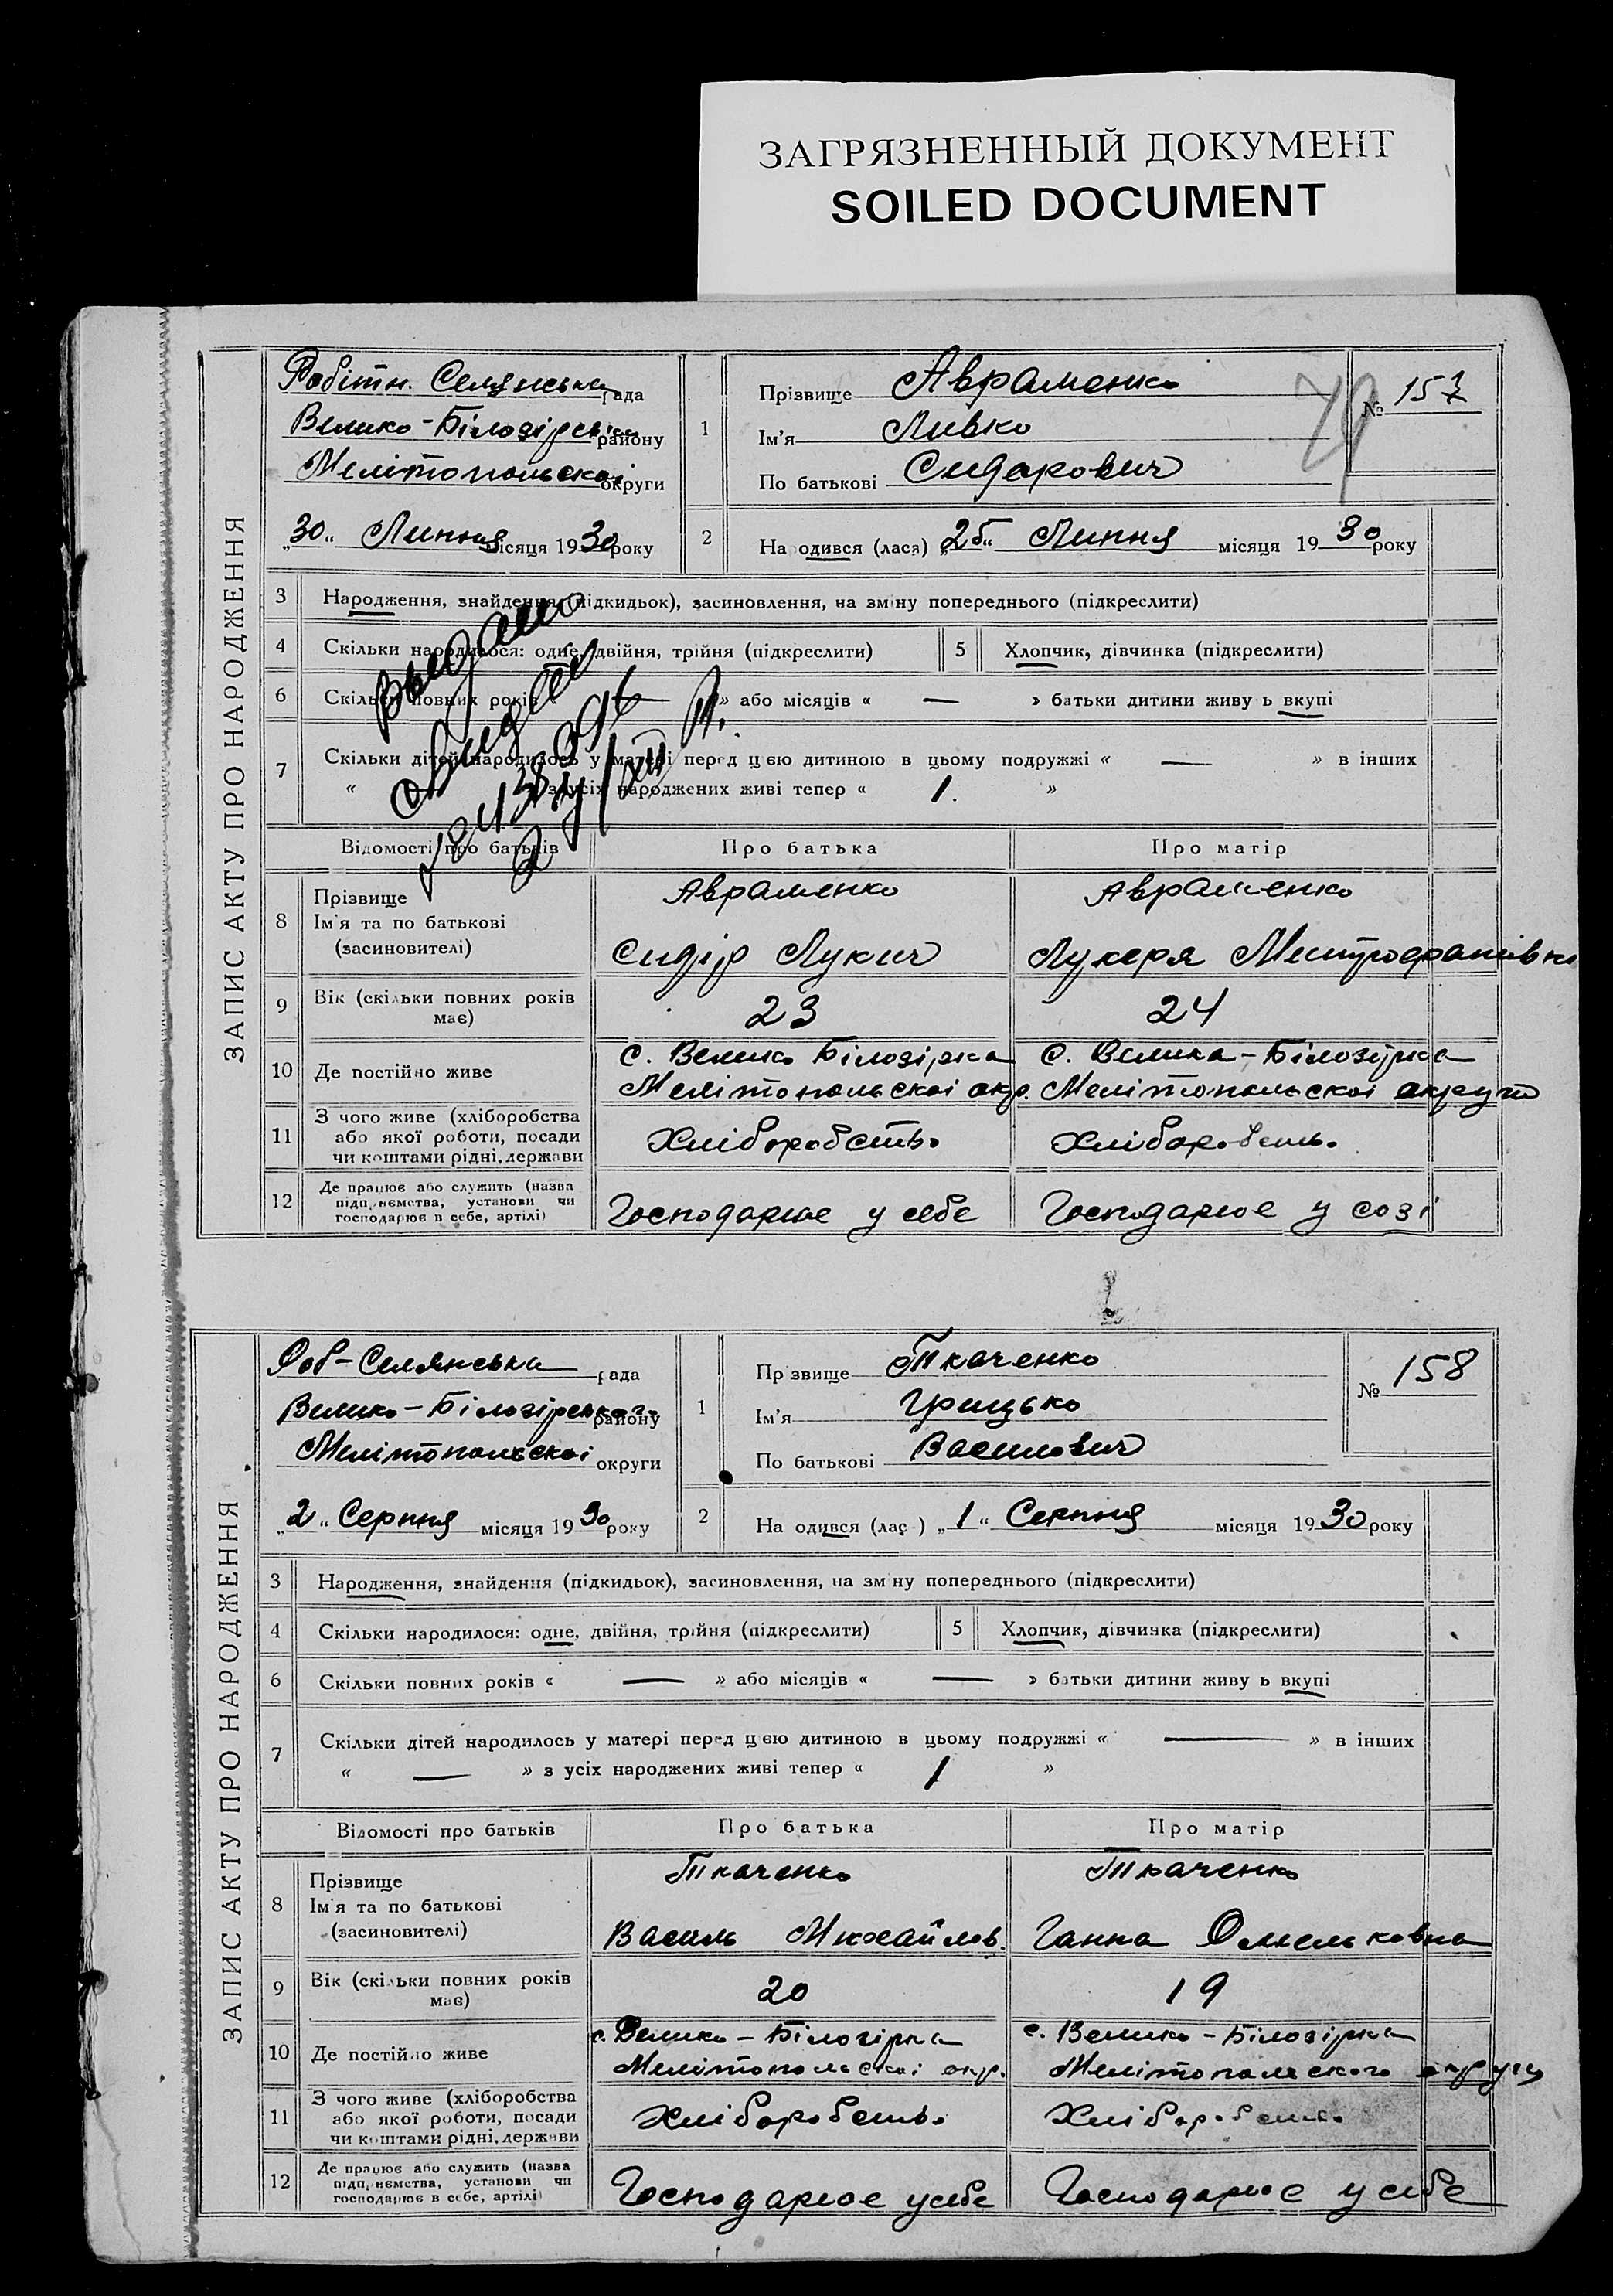 ЗАГРЯЗНЕННЫЙ ДОКУМЕНТ
SOILED DOCUMENT
ЗАПИС АКТУ ПРО НАРОДЖЕННЯ
Робітн. Селянська рада
Велико-Білозірськ району
Мелітопольскоі округи
„30“ Липня місяця 1930 року
1
Прізвище Авраменко
Ім'я Ливко
По батькові Сидарович
№ 157
2
Народився (лася) „25“ Липня місяця 1930 року
3 Народження, знайдення (підкидьок), засиновлення, на зміну попереднього (підкреслити)
4 Скільки народилося: одне, двійня, трійня (підкреслити) 5 Хлопчик, дівчинка (підкреслити)
6 Скільки повних років « — » або місяців « — » батьки дитини живуть вкупі
7 Скільки дітей народилось у матері перед цією дитиною в цьому подружжі « — » в інших
« з усіх народжених живі тепер « 1. »
Выдано
Відомості про батьків Про батька Про матір
8 Прізвище Ім'я та по батькові (засновителі)
Авраменко Авраменко
Сидір Лукич Лукеря Митрофанівна
9 Вік (скільки повних років має) 23 24
10 Де постійно живе
с. Велико Білозірка с. Велика-Білозірка
Мелітопольскоі окр. Мелітопольскоі округи
11 З чого живе (хліборобства або якої роботи, посади чи коштами рідні, держави
Хліборобств. Хліборобств.
12 Де працює або служить (назва підприємства, установи чи господарює в себе, артілі)
Господарює у себе Господарює у
ЗАПИС АКТУ ПРО НАРОДЖЕННЯ
Роб-Селянська рада
Велико-Білозірського району
Мелітопольскоі округи
„2“ Серпня місяця 1930 року
1
Прізвище Ткаченко
Ім'я Грицько
По батькові Василович
№ 158
2
Народився (лась) „1“ Серпня місяця 1930 року
3 Народження, знайдення (підкидьок), засиновлення, на зміну попереднього (підкреслити)
4 Скільки народилося: одне, двійня, трійня (підкреслити) 5 Хлопчик, дівчинка (підкреслити)
6 Скільки повних років « — » або місяців « — » батьки дитини живуть вкупі
7 Скільки дітей народилось у матері перед цією дитиною в цьому подружжі « — » в інших
« — » з усіх народжених живі тепер « 1 »
Відомості про батьків Про батька Про матір
8 Прізвище Ім'я та по батькові (засиновителі)
Ткаченко Ткаченко
Василь Михайлов. Ганна Омельковна
9 Вік (скільки повних років має) 20 19
10 Де постійно живе
с. Велико-Білозірка с. Велико-Білозірка
Мелітопольскоі окр. Мелітопольского округу
11 З чого живе (хліборобства або якої роботи, посади чи коштами рідні, держави
Хліборобств. Хліборобств.
12 Де працює або служить (назва підприємства, установи чи господарює в себе, артілі)
Господарює у себе Господарює у себе